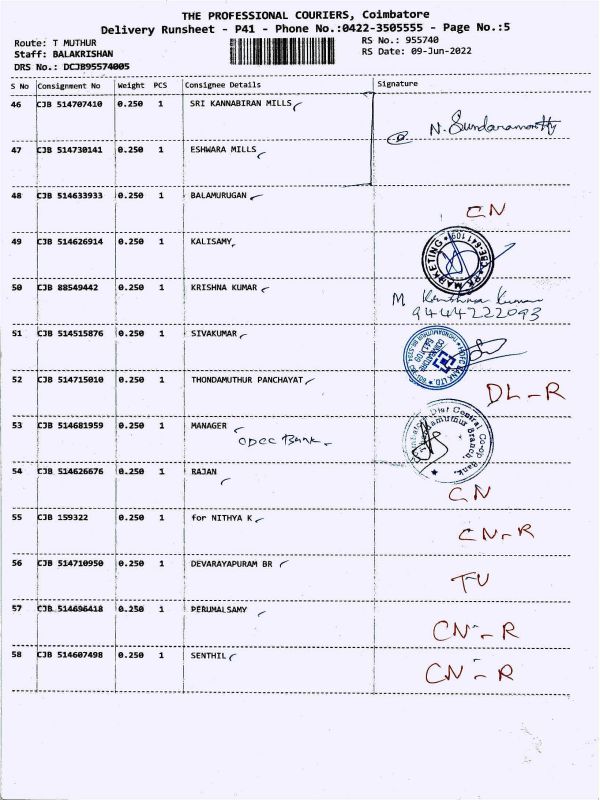 THE PROFESSIONAL COURIERS, Coimbatore
Delivery Runsheet - P41 - Phone No.:0422-3505555 - Page No.:5
Route: T MUTHUR
RS No.: 955740
Staff: BALAKRISHAN
RS Date: 09-Jun-2022
DRS No.: DCJB95574005
S No Consignment No Weight PCS Consignee Details Signature
46 CJB 514707410 0.250 1 SRI KANNABIRAN MILLS
N. Sundaramoorthy
47 CJB 514730141 0.250 1 ESHWARA MILLS
48 CJB 514633933 0.250 1 BALAMURUGAN
CN
49 CJB 514626914 0.250 1 KALISAMY
PK MARKETING * CBE-641 109 *
50 CJB 88549442 0.250 1 KRISHNA KUMAR
M Krishna Kumar
9444222093
51 CJB 514515876 0.250 1 SIVAKUMAR
COIMBATORE
641109
52 CJB 514715010 0.250 1 THONDAMUTHUR PANCHAYAT
DL-R
53 CJB 514681959 0.250 1 MANAGER
CDCC Bank
Coimbatore Dist Central Co-op Bank.
Thondamuthur Branch.
54 CJB 514626676 0.250 1 RAJAN
CN
55 CJB 159322 0.250 1 for NITHYA K
CN-R
56 CJB 514710950 0.250 1 DEVARAYAPURAM BR
TU
57 CJB 514696418 0.250 1 PERUMALSAMY
CN-R
58 CJB 514607498 0.250 1 SENTHIL
CN-R